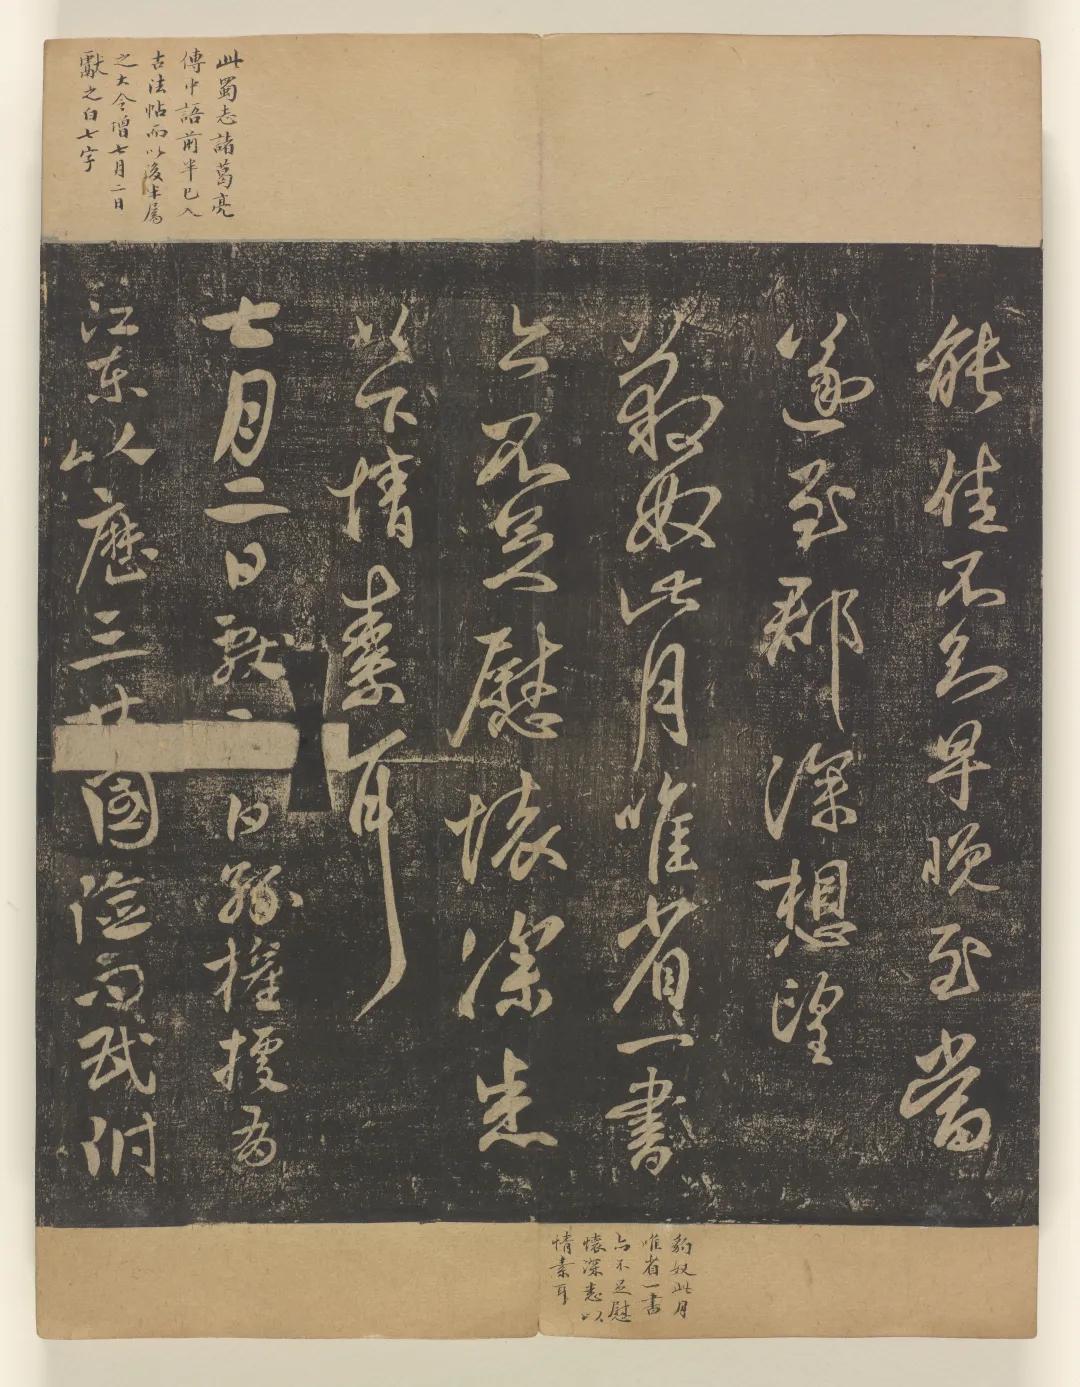 能佳不知早晚至當
遂至郡深想望
豹奴此月唯省一書
亦不足慰懷深悉
以下情素耳
七月二日獻之白孫權據有
江東以歷三世國險而民附
此蜀志諸葛亮
傳中語前半已入
古法帖而以後半屬
之大令增七月二日
獻之白七字
豹奴此月
唯省一書
亦不足慰
懷深悉以
情素耳